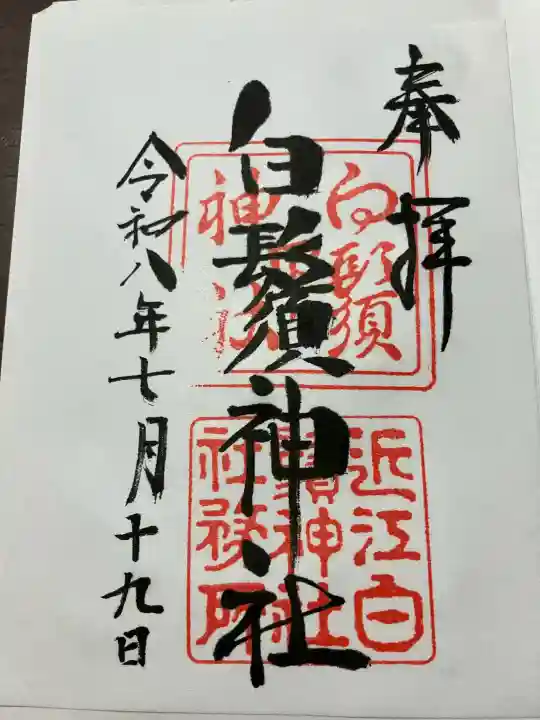 奉拝
白鬚神社
令和八年七月十九日
白鬚
神社
近江白
鬚神社
社務所